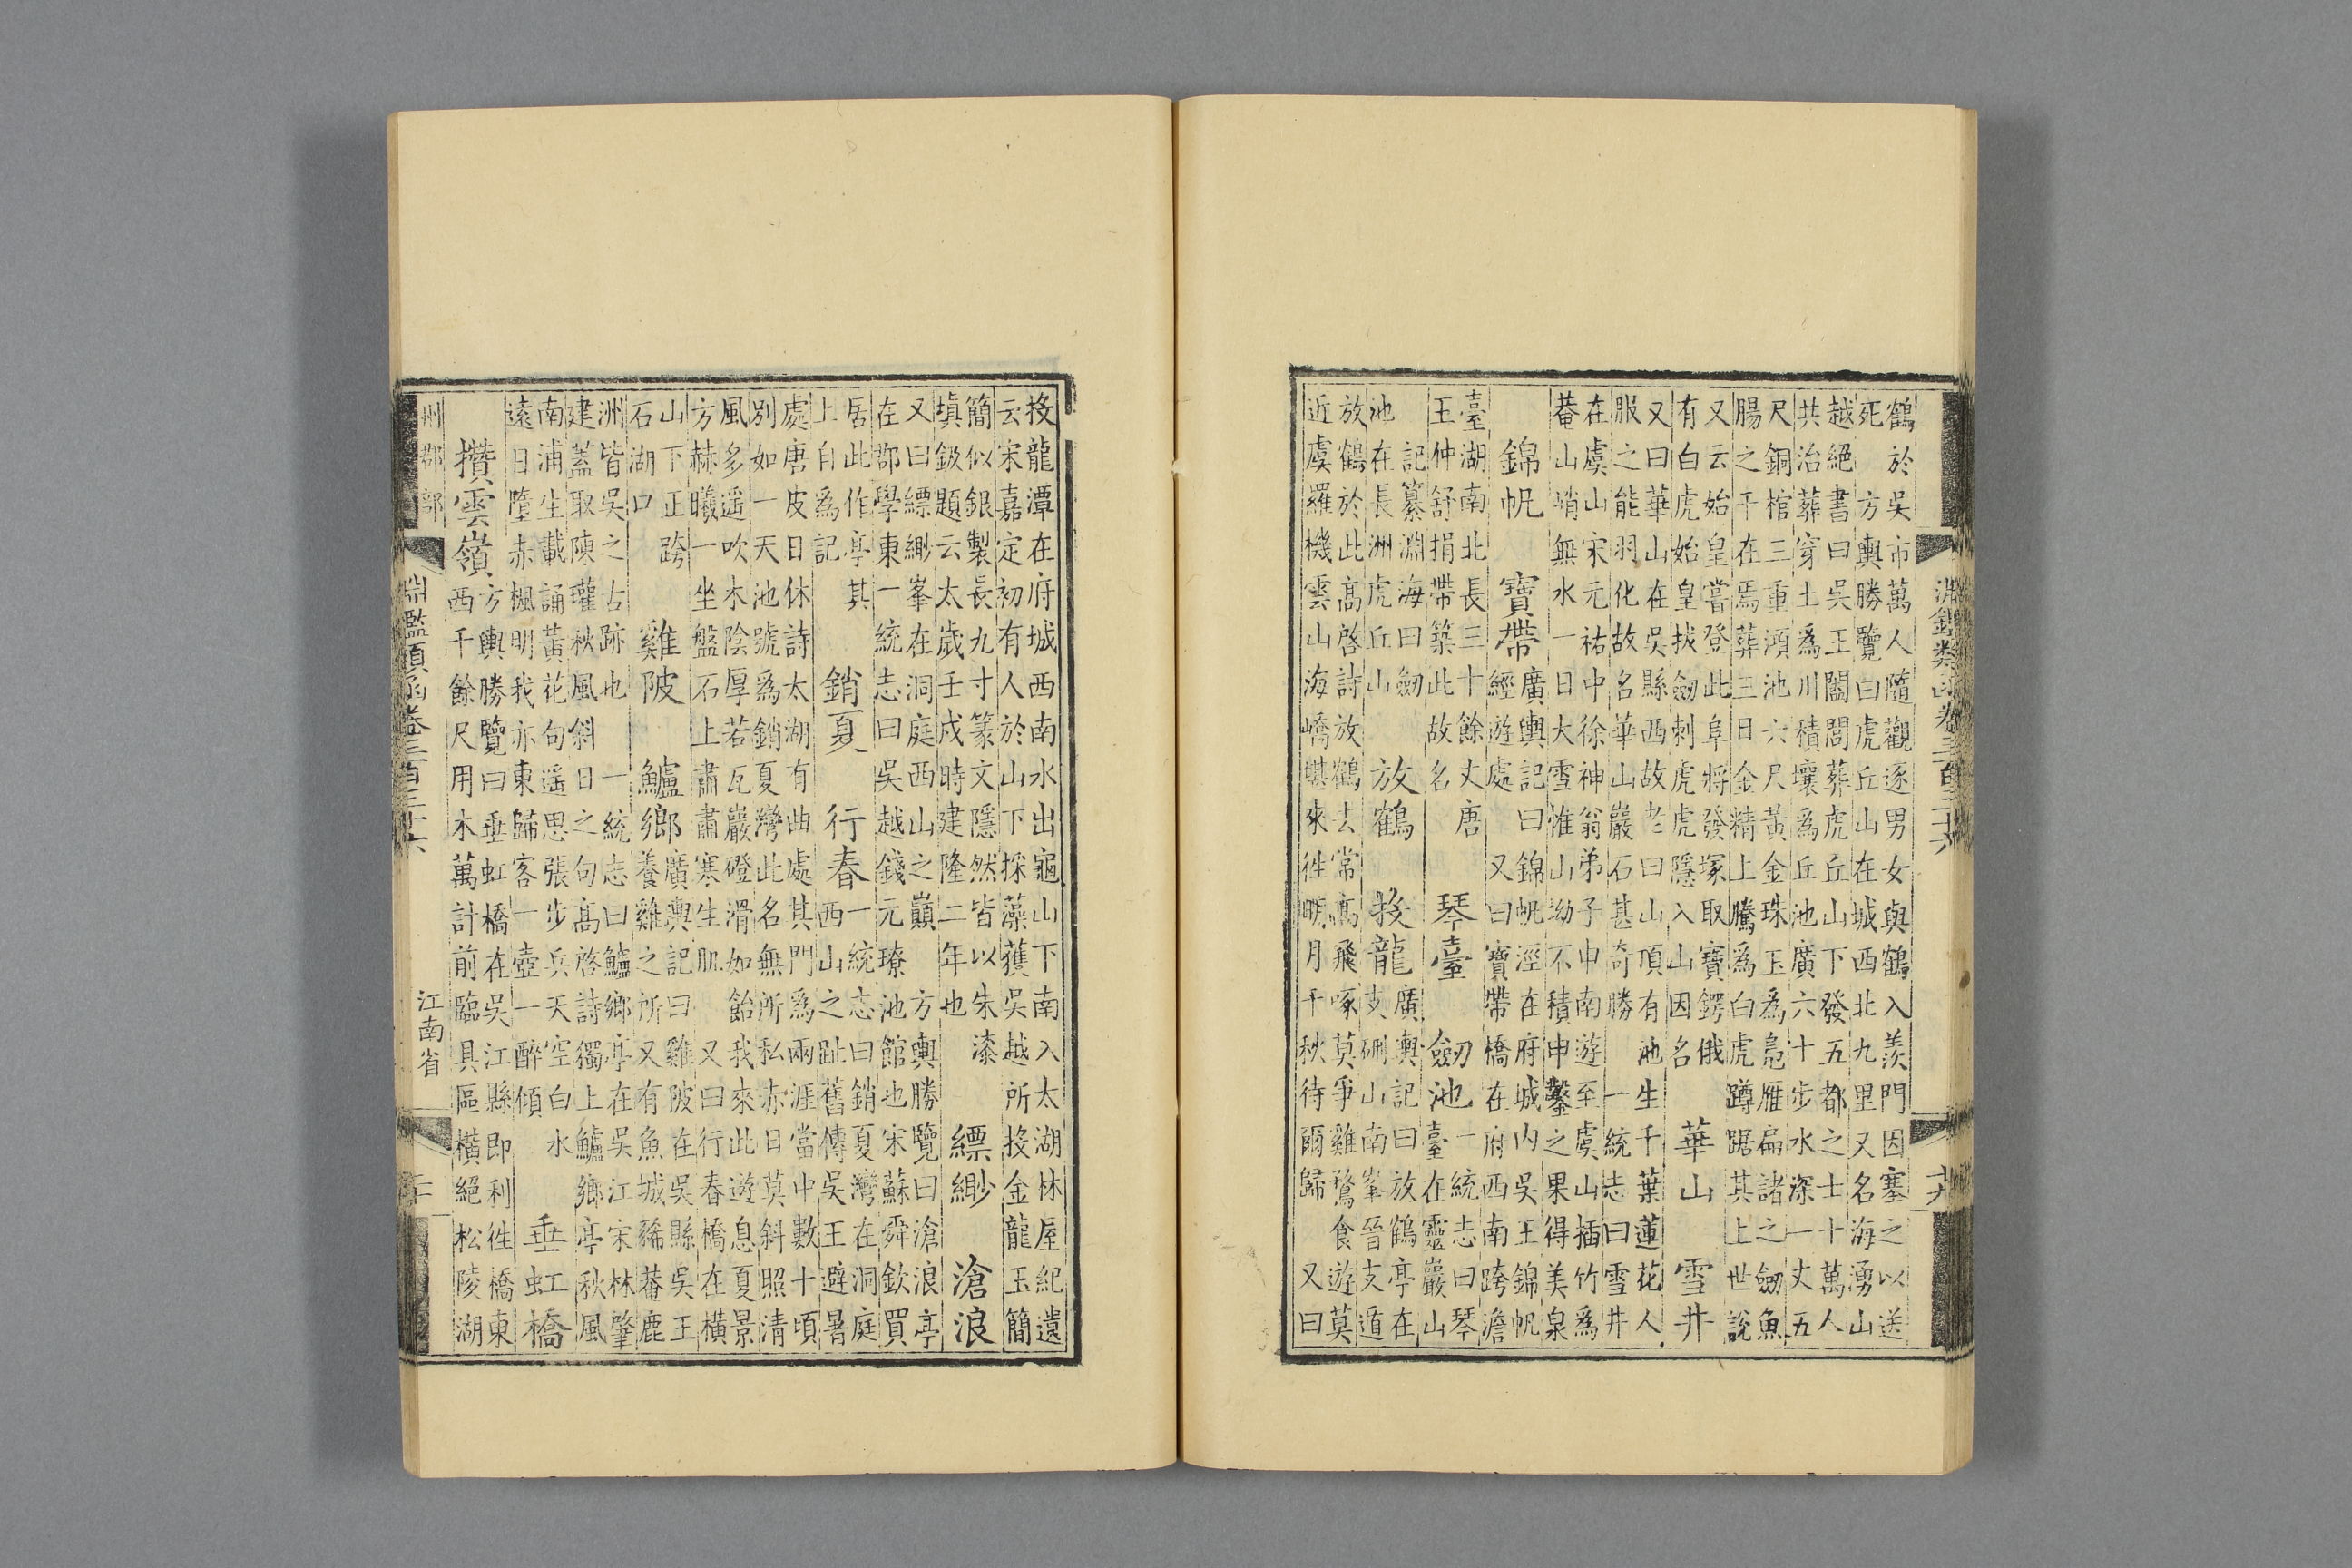 淵鑑類函卷三百三十六 十九
鶴於吳市萬人隨觀逐男女與鶴入羨門因塞之以送
死 方輿勝覽曰虎丘山在城西北九里又名海湧山
越絕書曰吳王闔閭葬虎丘山下發五都之士十萬人
共治葬穿土為川積壤為丘池廣六十步水深一丈五
尺銅棺三重澒池六尺黃金珠玉為鳧雁扁諸之劒魚
腸之干在焉葬三日金精上騰為白虎蹲踞其上世說
又云始皇嘗登此阜將發塚取寶鍔俄
有白虎始皇拔劒刺虎虎隱入山因名
華山 雪井
又曰華山在吳縣西故老曰山頂有池生千葉蓮花人
服之能羽化故名華山巖石甚奇勝 一統志曰雪井
在虞山宋元祐中徐神翁弟子申南遊至虞山插竹為
菴山峭無水一日大雪惟山坳不積申鑿之果得美泉
錦帆 寶帶
廣輿記曰錦帆涇在府城內吳王錦帆
經遊處 又曰寶帶橋在府西南跨澹
臺湖南北長三十餘丈唐
王仲舒捐帶築此故名
琴臺 劒池
一統志曰琴
臺在靈巖山
記纂淵海曰劒
池在長洲虎丘山
放鶴 投龍
廣輿記曰放鶴亭在
支硎山南峯晉支遁
放鶴於此高啓詩放鶴去常高飛啄莫爭雞鶩食遊莫
近虞羅機雲山海嶠堪來徃曠月千秋待爾歸 又曰
投龍潭在府城西南水出龜山下南入太湖林屋紀遺
云宋嘉定初有人於山下採藻獲吳越所投金龍玉簡
簡似銀製長九寸篆文隱然皆以朱漆
填鈒題云太歲壬戌時建隆二年也
縹緲 滄浪
又曰縹緲峯在洞庭西山之巔 方輿勝覽曰滄浪亭
在郡學東一統志曰吳越錢元璙池館也宋蘇舜欽買
居此作亭其
上自為記
銷夏 行春
一統志曰銷夏灣在洞庭
西山之趾舊傳吳王避暑
處唐皮日休詩太湖有曲處其門為兩涯當中數十頃
別如一天池號為銷夏灣此名無所私赤日莫斜照清
風多遥吹木陰厚若瓦巖磴滑如飴我來此遊息夏景
方赫曦一坐盤石上肅肅寒生肌 又曰行春橋在橫
山下正跨
石湖口
雞陂 鱸鄉
廣輿記曰雞陂在吳縣吳王
養雞之所又有魚城豨菴鹿
洲皆吳之古跡也 一統志曰鱸鄉亭在吳江宋林肇
建蓋取陳瓘秋風斜日之句高啓詩獨上鱸鄉亭秋風
南浦生載誦黃花句遥思張步兵天空白水
遠日墮赤楓明我亦東歸客一壺一醉傾
垂虹橋
攢雲嶺
方輿勝覽曰垂虹橋在吳江縣即利徃橋東
西千餘尺用木萬計前臨具區橫絕松陵湖
州郡部 淵鑑類函卷三百三十六 江南省